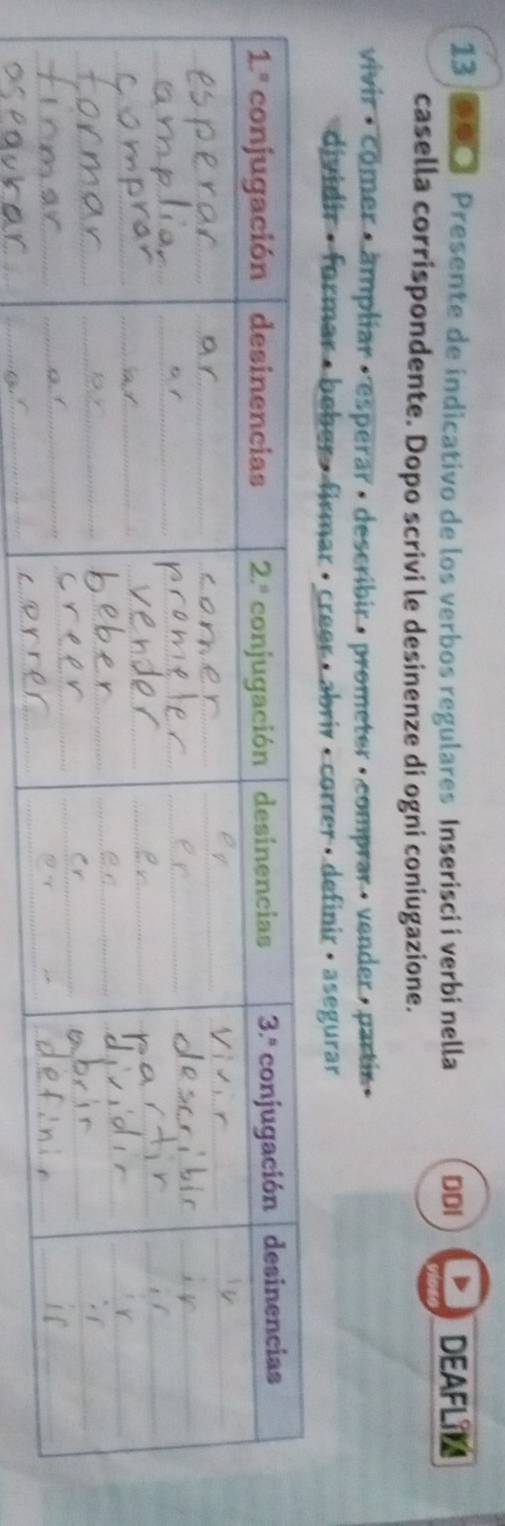 13 Presente de indicativo de los verbos regulares Inserisci i verbi nella DDI VIDEO DEAFLIX
casella corrispondente. Dopo scrivi le desinenze di ogni coniugazione.
vivir • comer • ampliar • esperar • describir • prometer • comprar • vender • partir •
dividir • formar • beber • firmar • creer • abrir • correr • definir • asegurar
1.ª conjugación desinencias 2.ª conjugación desinencias 3.ª conjugación desinencias
esperar ar comer er vivir ir
ampliar ar prometer er describir ir
comprar ar vender er partir ir
formar ar beber er dividir ir
firmar ar creer er abrir ir
asegurar ar correr er definir ir